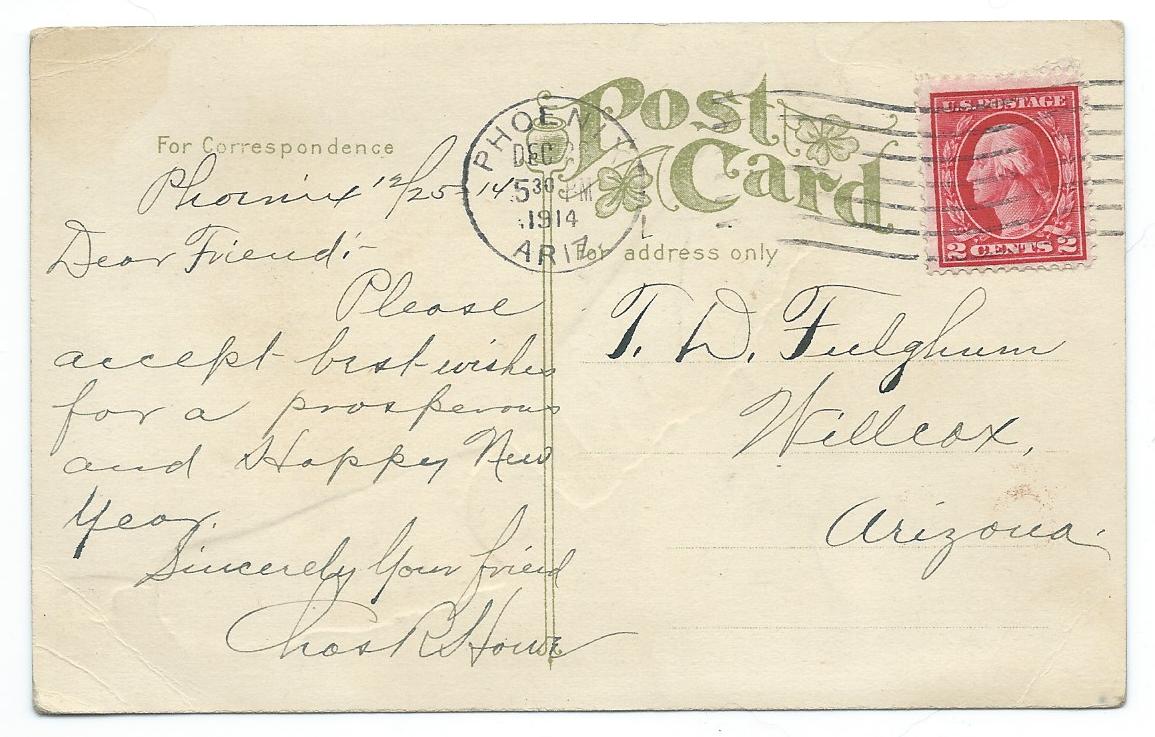 Post
Card
U.S. POSTAGE
2 CENTS 2
PHOENIX
DEC
5 30 PM
1914
ARIZ
For Correspondence
For address only
Phoenix 12/25-14
Dear Friend:-
Please
accept best wishes
for a prosperous
and Happy New
Year.
Sincerely Your friend
Chas R
T. D. Fulghum
Willcox,
Arizona.